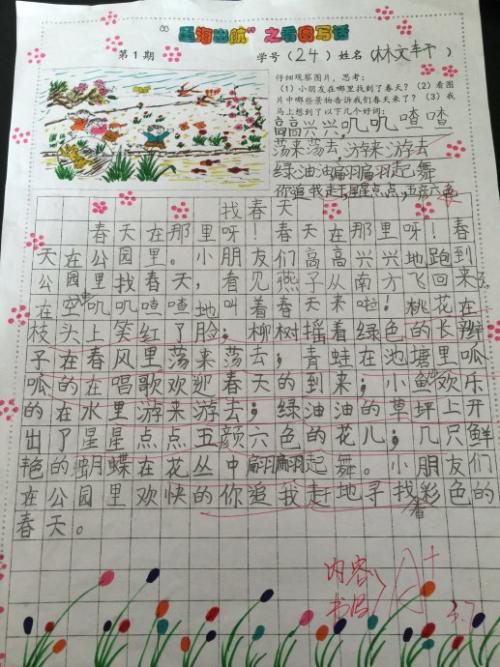 "星海出航"之看图写话
第1期 学号(24) 姓名(林文轩)
仔细观察图片，思考：
(1)小朋友在哪里找到了春天？(2)看图
片中哪些景物告诉我们春天来了？(3)我
马上想到了以下几个好词：
高高兴兴 叽叽喳喳
荡来荡去 游来游去
绿油油 翩翩起舞
你追我赶 星星点点 五颜六色
找春天
春天在那里呀！春天在那里呀！春
天在公园里。小朋友们高高兴兴地跑到
公园里找春天，看见燕子从南方飞回来
在空中叽叽喳喳地叫着春天来啦！桃花在
枝头上笑红了脸；柳树摇着绿色的长辫
子在春风里荡来荡去；青蛙在池塘里呱
呱的在唱歌欢迎春天的到来；小鱼欢乐
的在水里游来游去；绿油油的草坪上开
出了星星点点五颜六色的花儿；几只鲜
艳的蝴蝶在花丛中翩翩起舞。小朋友们
在公园里欢快的你追我赶地寻找着彩色的
春天。
内容
书写
A+
3.7